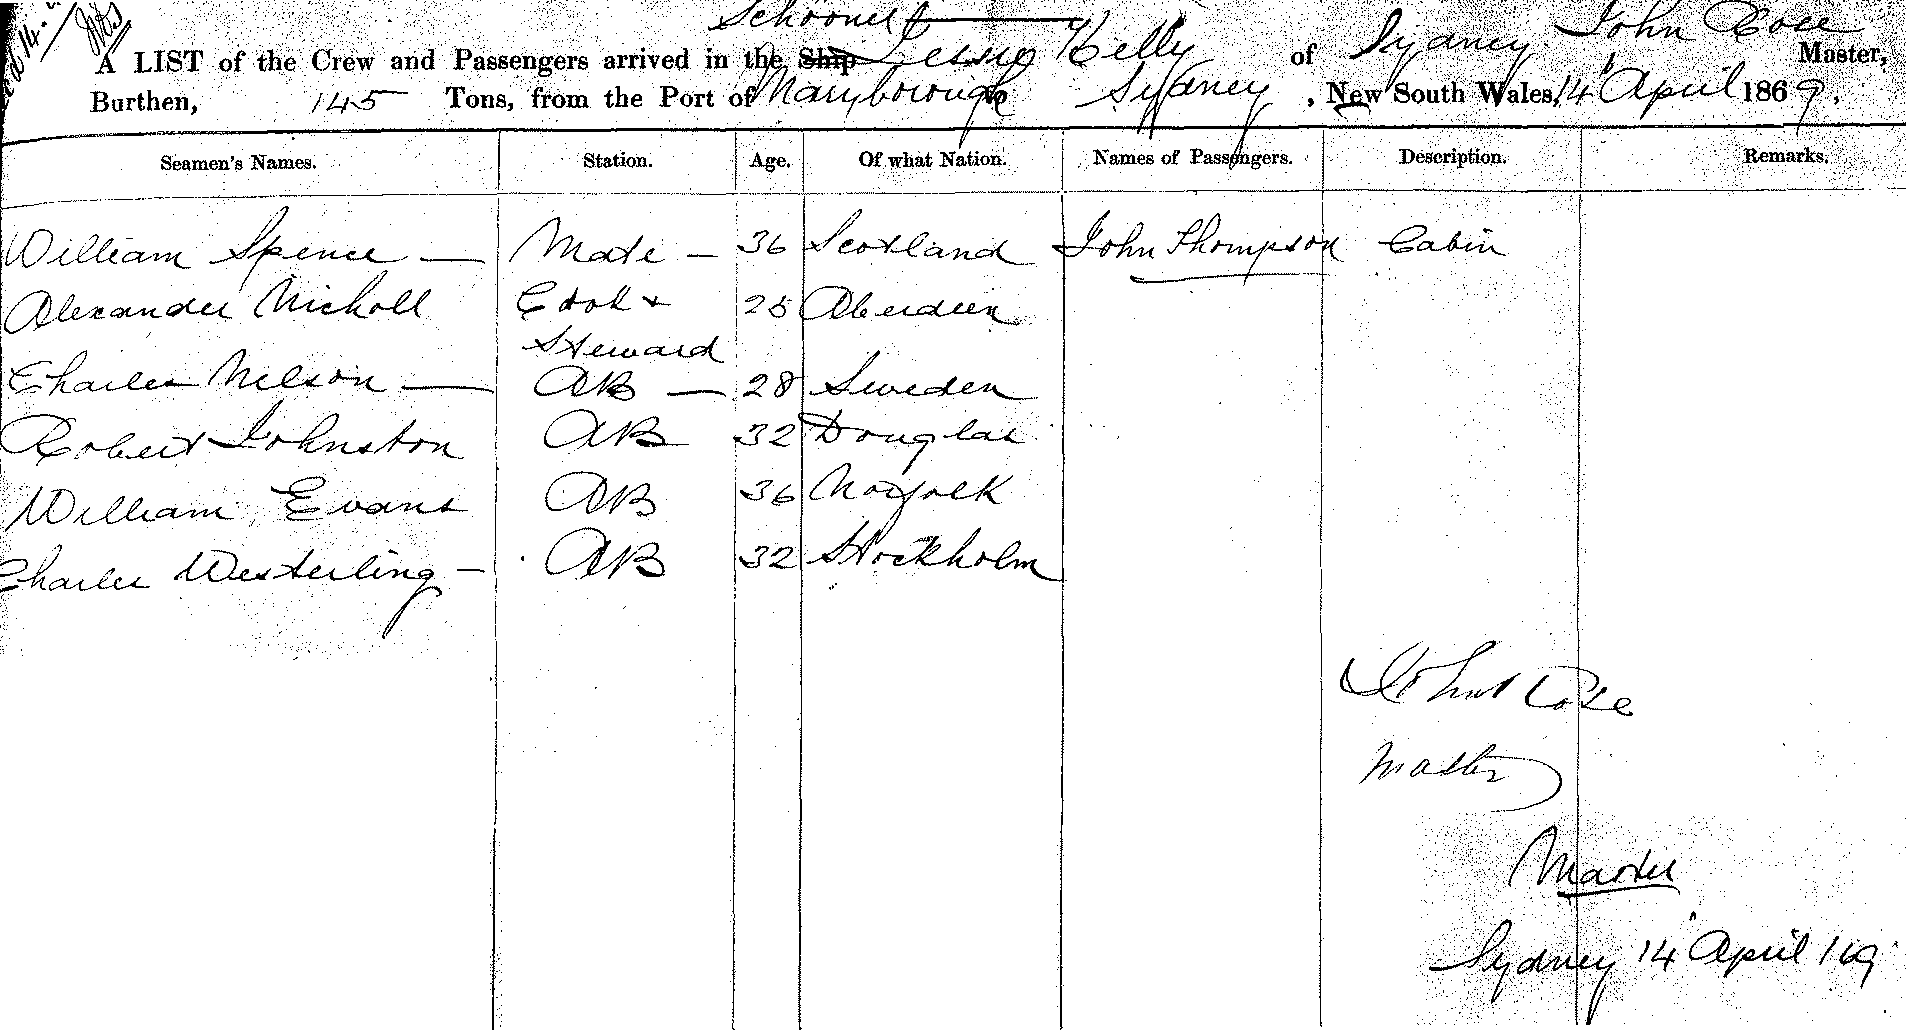 Schooner
A LIST of the Crew and Passengers arrived in the Ship Jessie Kelly of Sydney John Rose Master,
Burthen, 145 Tons, from the Port of Maryborough to Sydney, New South Wales, 14" April 1869.
Seamen's Names. Station. Age. Of what Nation. Names of Passengers. Description. Remarks.
William Spence — Mate — 36 Scotland John Thompson Cabin
Alexander Nicholl Cook + 25 Aberdeen
Steward
Charles Nelson — AB — 28 Sweden
Robert Johnston AB 32 Douglas
William Evans AB 36 Norfolk
Charles Westerling — AB 32 Stockholm
John
Master
Master
Sydney 14" April /69